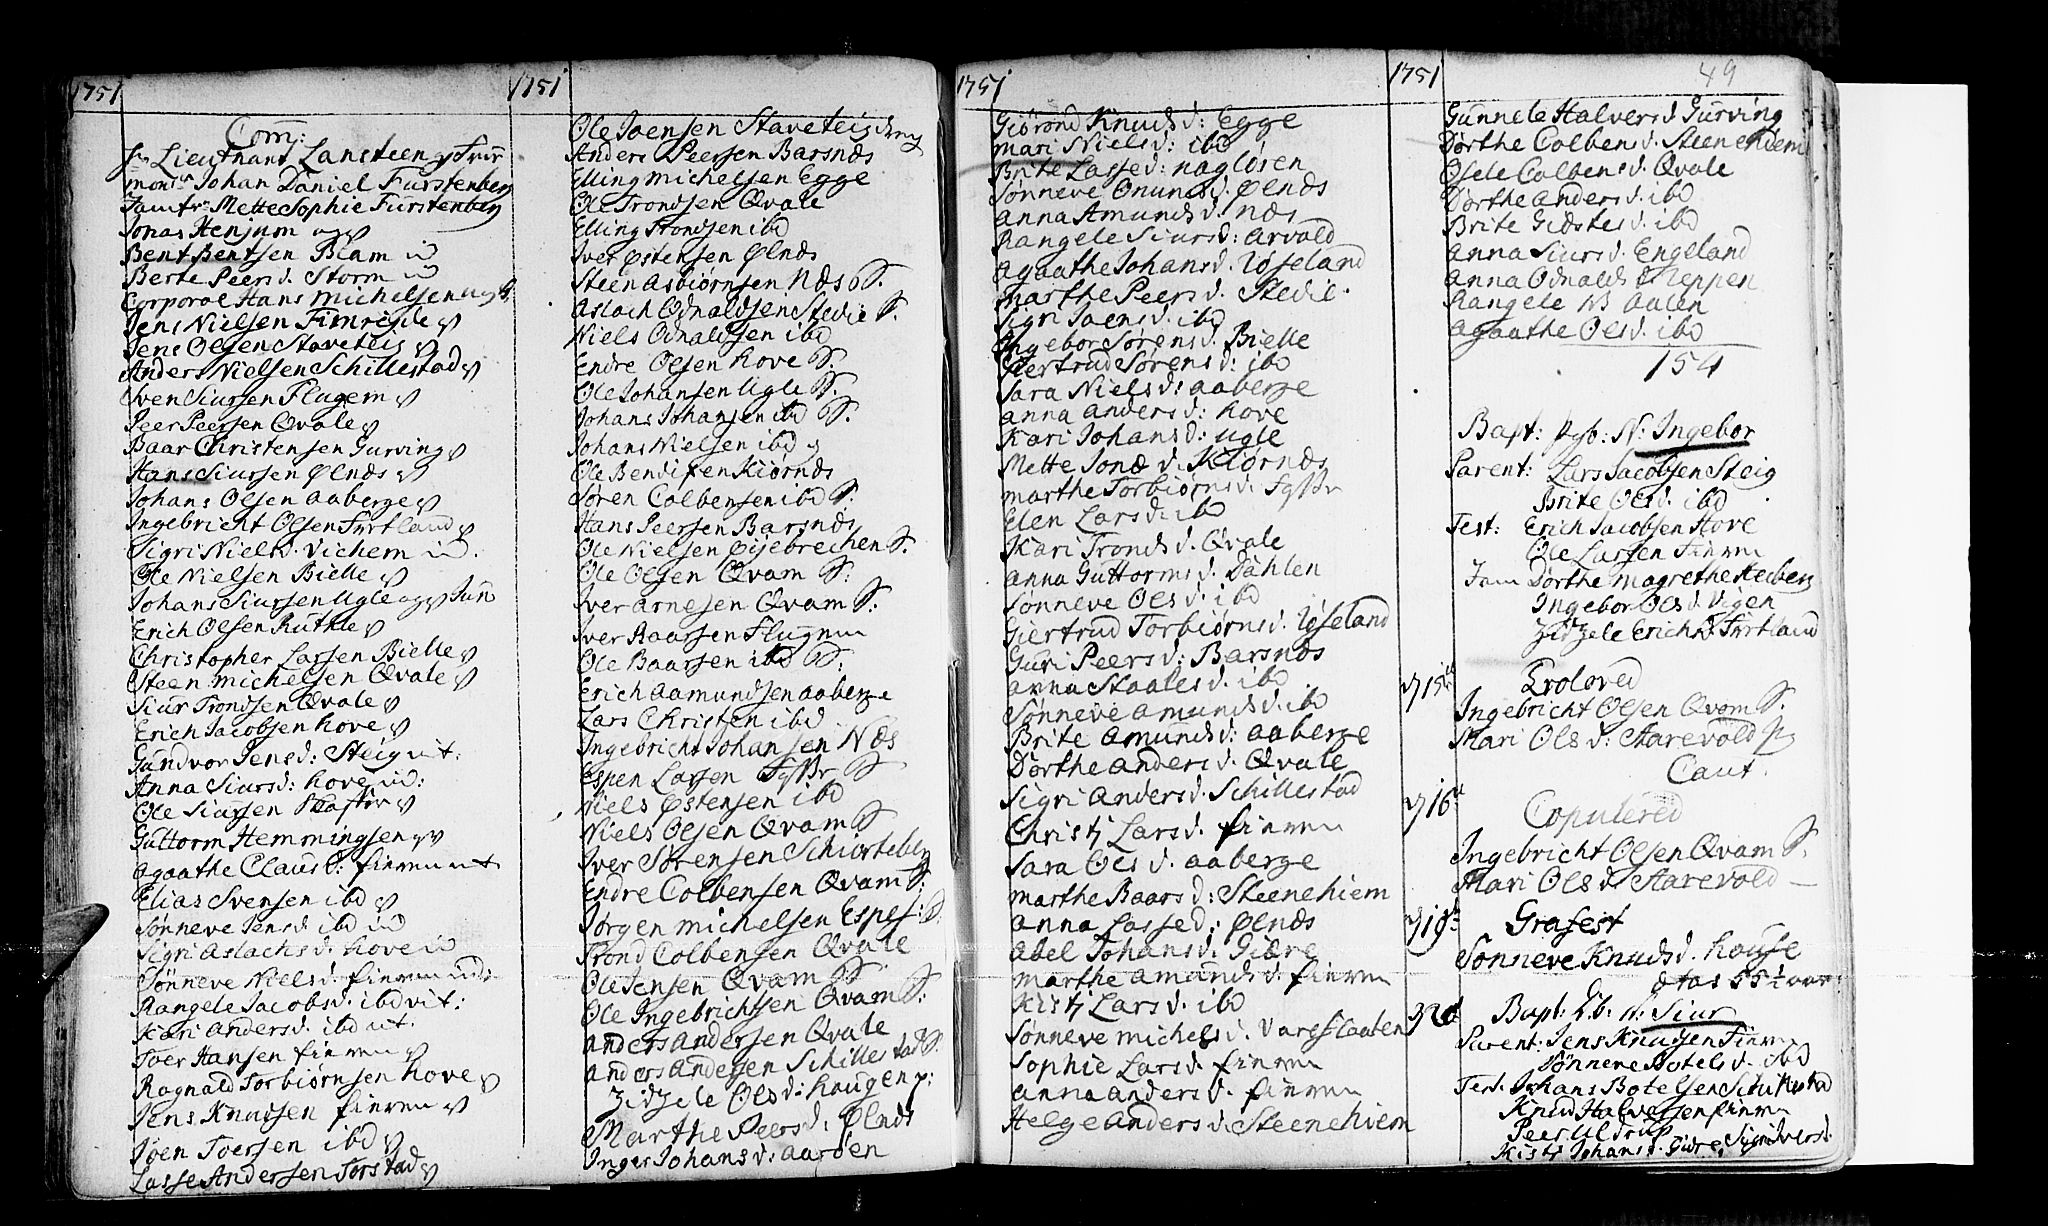 1751
Com:
Sr Lieutnant Lansteen og Frue
Monsr Johan Daniel Furstenberg
Jomfr Mette Sophie Furstenberg
Jonas Henjum
Bent Bentsen Blam
Berte Peersd. Storm
Corporal Hans Michelsen
Jens Nielsen Fimreide
Jens Olsen Staveteig
Anders Nielsen Schillestad
Sven Siursen Flugem
Peer Peersen Qvale
Baar Christensen Gurving
Hans Siursen Ølnæs
Johans Olsen Aaberge
Ingebricht Olsen Tyrtland
Sigri Nielsd. Vichem
Ole Nielsen Bielle
Johans Siursen Ugle
Erich Olsen Rutle
Christopher Larsen Bielle
Steen Michelsen Qvale
Siur Trondsen Qvale
Erich Jacobsen Hove
Gundvor Jensd: Steig
Anna Siursd: Hove
Ole Siursen
Guttorm Hemmingsen
Agaathe Clausd:
Elias Svensen ibd
Sønneve Jensd ibd
Sigri Aslachsd. Hove
Sønneve Nielsd.
Rangele Jacobsd. ibd
Kari Andersd. ibd
Toer Hansen
Ragnald Torbiørnsen Hove
Jens Knudsen
Joen Toersen ibd
Lasse Andersen Torstad
1751
Ole Joensen Staveteig
Anders Peersen Barsnæs
Elling Michelsen Egge
Ole Trondsen Qvale
Elling Trondsen ibd
Iver Østensen Ølnæs
Steen Asbiørnsen Næs S.
Aslach Odnaldsen Stedie S.
Niels Odnaldsen ibd
Endre Olsen Hove S.
Ole Johansen Ugle S.
Johans Johansen ibd S.
Johans Nielsen ibd
Ole Bendixen Kiørnæs
Søren Colbensen ibd S.
Hans Peersen Barsnæs
Ole Nielsen Øyebrechen S.
Ole Olsen Qvam S:
Iver Arnesen Qvam S:
Iver Baarsen Flugum
Ole Baarsen ibd S:
Erich Aamundsen Aaberge
Lars Christen ibd
Ingebricht Johansen Næs
Espen Larsen S
Niels Østensen ibd
Niels Olsen Qvam S
Iver Sørensen Schiorteberg
Endre Colbensen Qvam S:
Jørgen Michelsen Espes: S.
Trond Colbensen Qvale
Ole Jensen Qvam S.
Ole Ingebrichtsen Qvam S:
Anders Andersen Qvale
Anders Andersen Schillestad S.
Zidzele Olsd: Haugen
Marthe Peersd: Ølnæs
Inger Johansd: Aarøen
1751
Giørond Knudsd: Egge
Mari Nielsd: ibd
Brite Lassed: Nagløren
Sønneve Onunsd. Ølnæs
Anna Amundsd. Næs
Rangele Siursd: Arvold
Agaathe Johansd. Uøseland
Marthe Peersd. Stedie.
Sigri Joensd. ibd
Ingebor Sørensd. Bielle
Giertrud Sørensd: ibd
Sara Nielsd: Aaberge
Anna Andersd: Hove
Kari Johansd: Ugle
Mette Jonæ d. Kiørnæs
Marthe Torbiørnsd.
Elen Larsd: ibd
Kari Trondsd. Qvale
Anna Guttormsd. Dahlen
Sønneve Olsd. ibd
Giertrud Torbiørnsd. Uøseland
Guri Peersd: Barsnæs
Anna Staalesd. ibd
Sønneve Amundsd. ibd
Brite Amundsd: Aaberge
Dorthe Andersd. Qvale
Sigri Andersd. Schillestad
Christj Larsd.
Sara Olsd. Aaberge
Marthe Baarsd: Steenehiem
Anna Lassed: Ølnæs
Abel Johansd. Giære
Marthe Amundsd.
Kistj Larsd. ibd
Sønneve Michelsd. Vargslaaten
Sophie Larsd.
Anna Andersd.
Helge Andersd. Steenehiem
1751
49
Gunnele Halversd Gurving
Dorthe Colbensd. Steenehiem
Osele Colbensd. Qvale
Dorthe Andersd. ibd
Brite Giøstesd. ibd
Anna Siursd. Engeland
Anna Odnaldsd Reppen
Rangele Aalen
Agaathe Olsd. ibd
154
Bapt: N: Ingebor
Parent: Lars Jacobsen Steig
Brite Olsd. ibd
Test: Erich Jacobsen Hove
Ole Larsen
Jom Dorthe Magrethe Heiberg
Ingebor Olsd. Vigen
Zidzele Erichsd Tyrtland
15de
Troloved
Ingebricht Olsen Qvam S.
Mari Olsd: Aarevold
Caut.
16de
Copulered
Ingebricht Olsen Qvam S.
Mari Olsd. Aarevold
19de
Grafest
Sønneve Knudsd. House
ætas 55 1/2 aar
Bapt: N: Siur
Parent: Jens Knudsen
Sønneve Botelsd. ibd
Test. Johans Botelsen
Knud Halversen
Peer Uldrup
Kistj Johansd. Giære, Sigri Iversd.